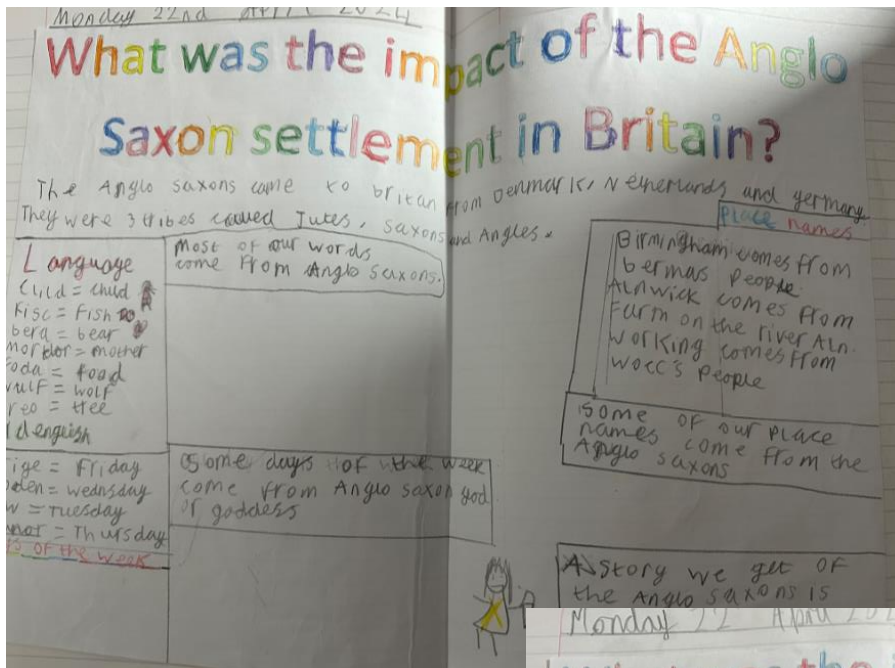 Monday 22nd April 2024
What was the impact of the Anglo
Saxon settlement in Britain?
The Anglo saxons came to britan from Denmark, Netherlands and germany
They were 3 tribes called Jutes, saxons and Angles.
Language
cild = child
Fisc = Fish
bera = bear
mordor = mother
foda = food
wulf = wolf
reo = tree
ld english
Most of our words
come from Anglo saxons.
ige = Friday
oden = wednsday
w = Tuesday
= Thursday
s of the week
Some days of the week
come from Anglo saxon god
or goddess
Place names
Birmingham comes from
bermas people.
Alnwick comes from
Farm on the river Aln.
working comes from
wocc's people
Some of our place
names come from the
Anglo saxons
A story we get of
the Anglo saxons is
Monday 22 April 202